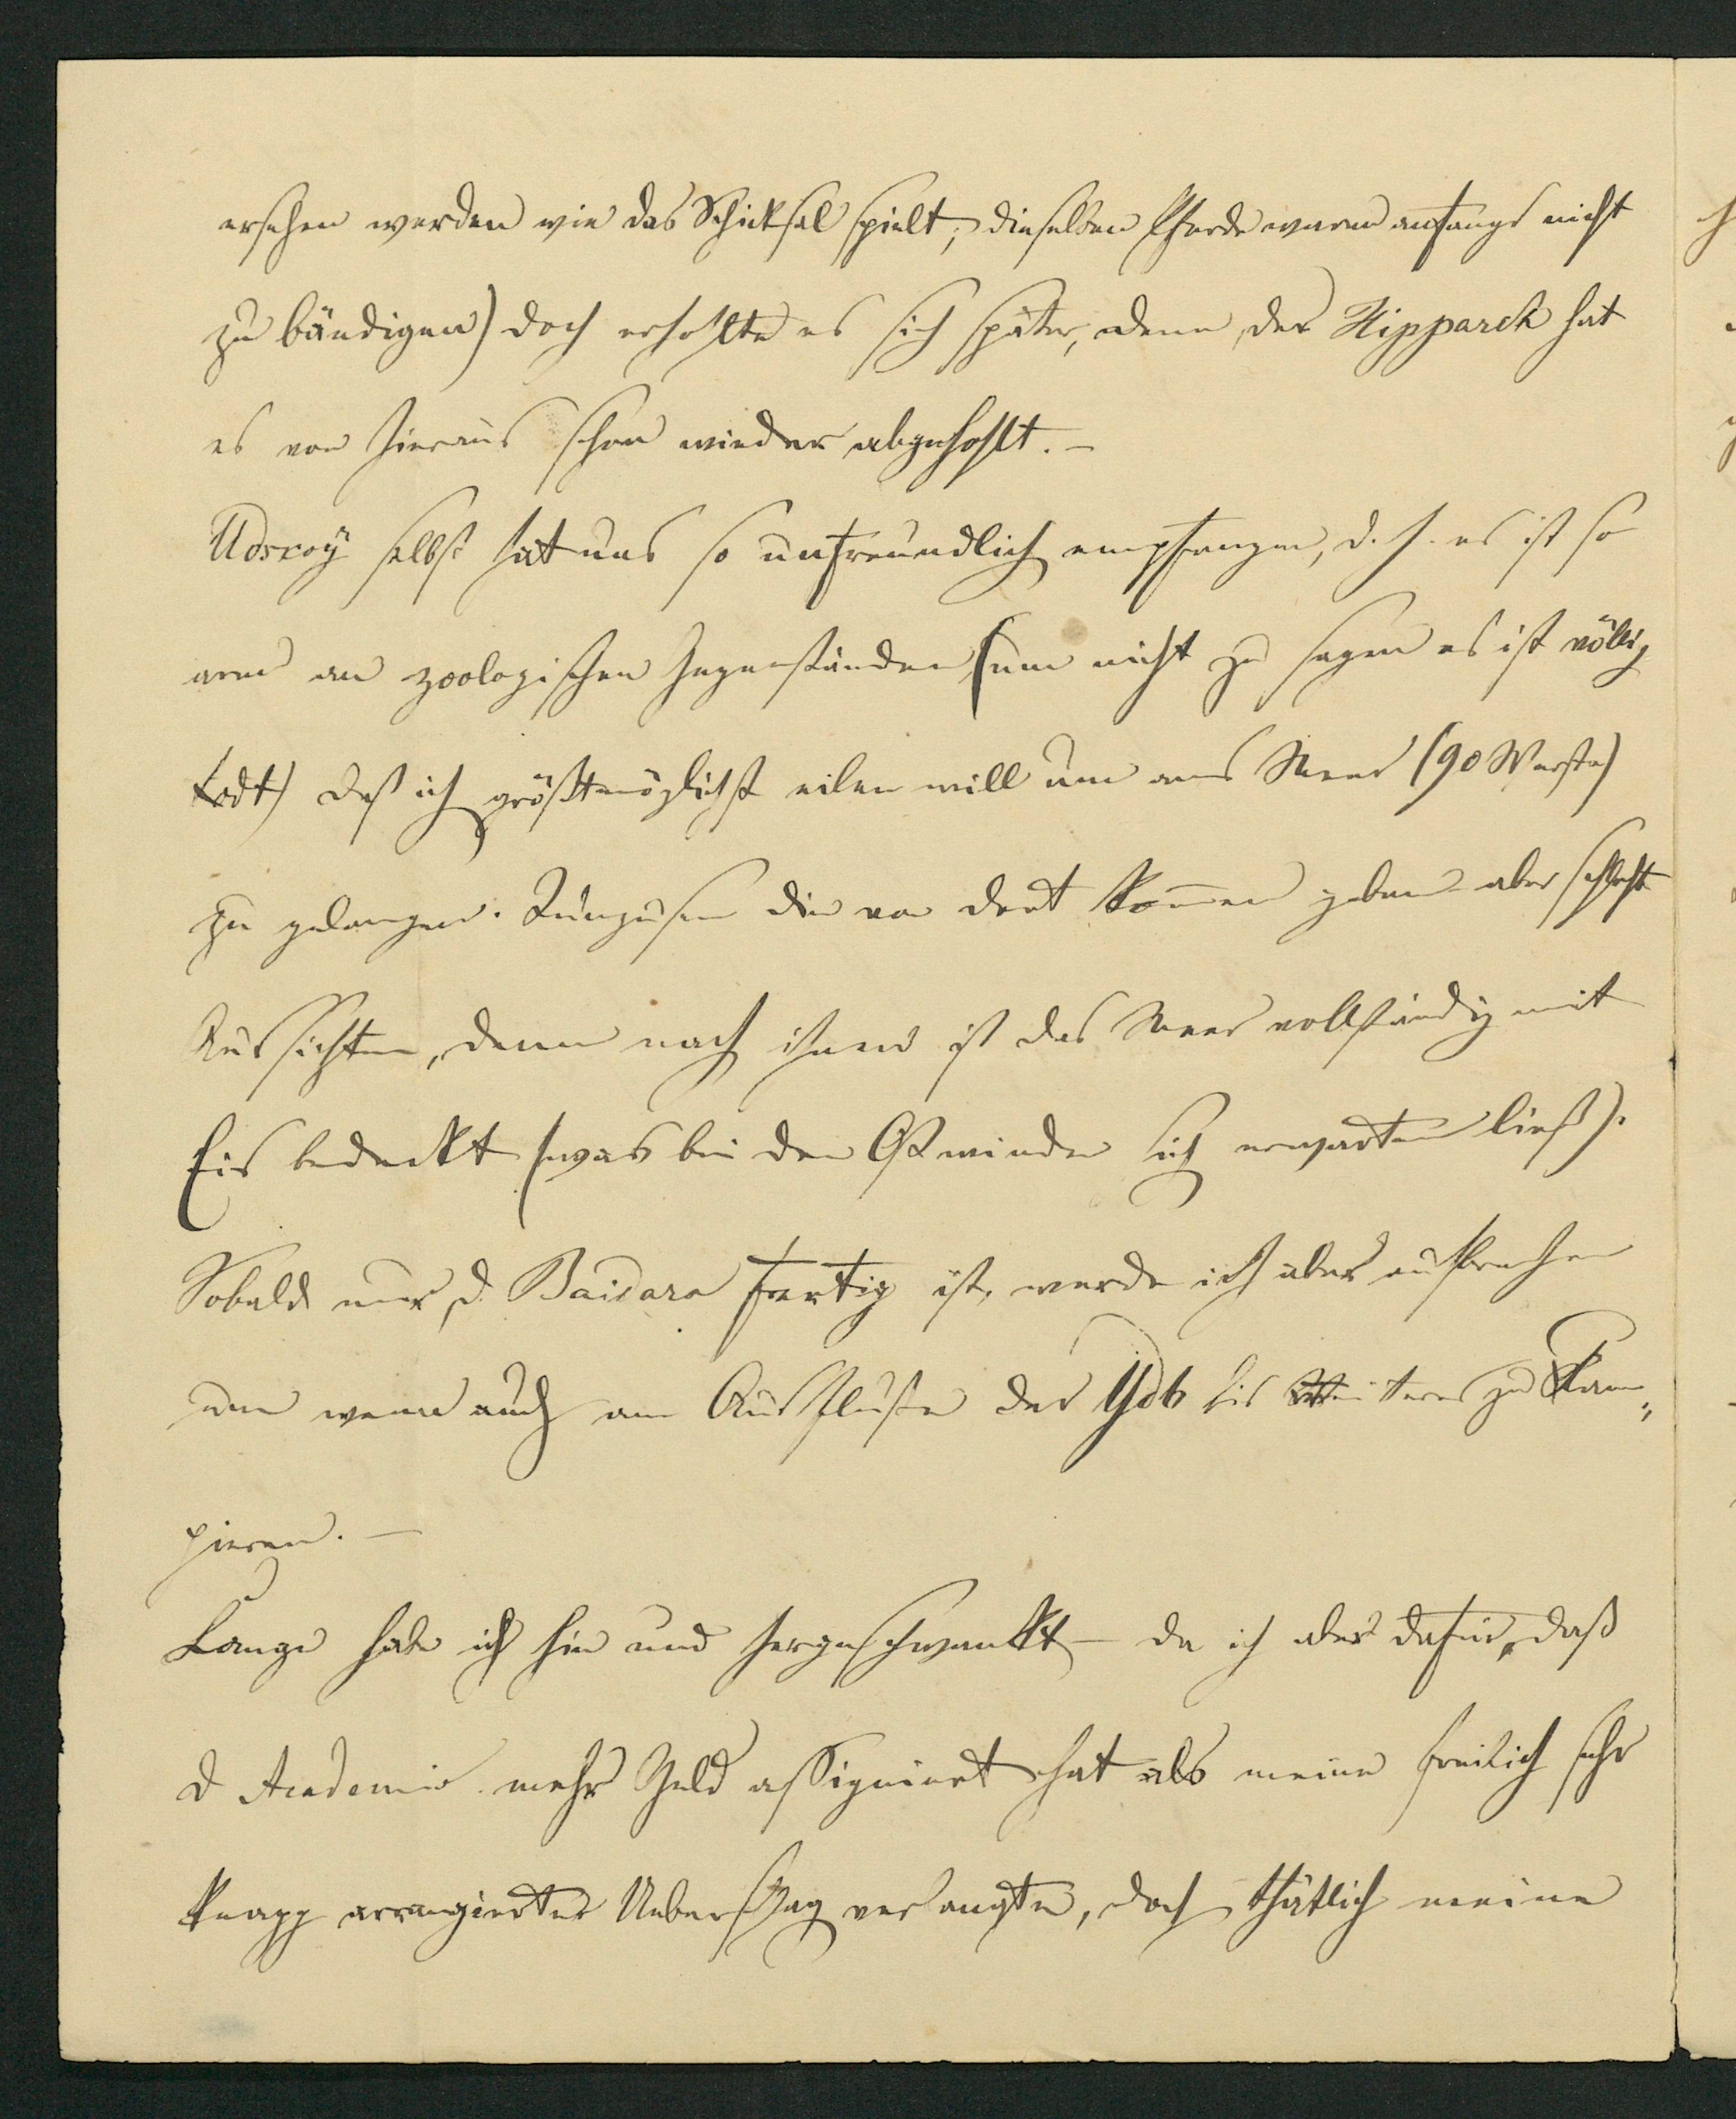 ersehen werden wie das Schicksal spielt; dieselben Pferde waren anfangs nicht
zu bändigen) doch erhohlte es sich später, denn der Hipparch hat
es von hieraus schon wieder abgehohlt. –
Udscoy selbst hat uns so unfreundlich empfangen, d. h. es ist so
arm an zoologischen Gegenständen (um nicht zu sagen es ist völlig
todt) daß ich größtmöglichst eilen will um ans Meer (90 Werste)
zu gelangen. Tungusen die von dort kommen geben aber schlechte
Aussichten, denn nach ihnen ist das Meer vollständig mit
Eis bedeckt (was bei den Ostwinden sich erwarten ließ).
Sobald nur d. Baidare fertig ist, werde ich aber aufbrechen
um wenn auch am Ausflusse der Udь bis Weiteres zu kam„
pieren. –
Lange habe ich hin und hergeschwankt – da ich aber daß
d Academie mehr Geld assignirt hat als meine freilich sehr
knapp arrangierter Ueberschlag verlangte, doch thätlich meine